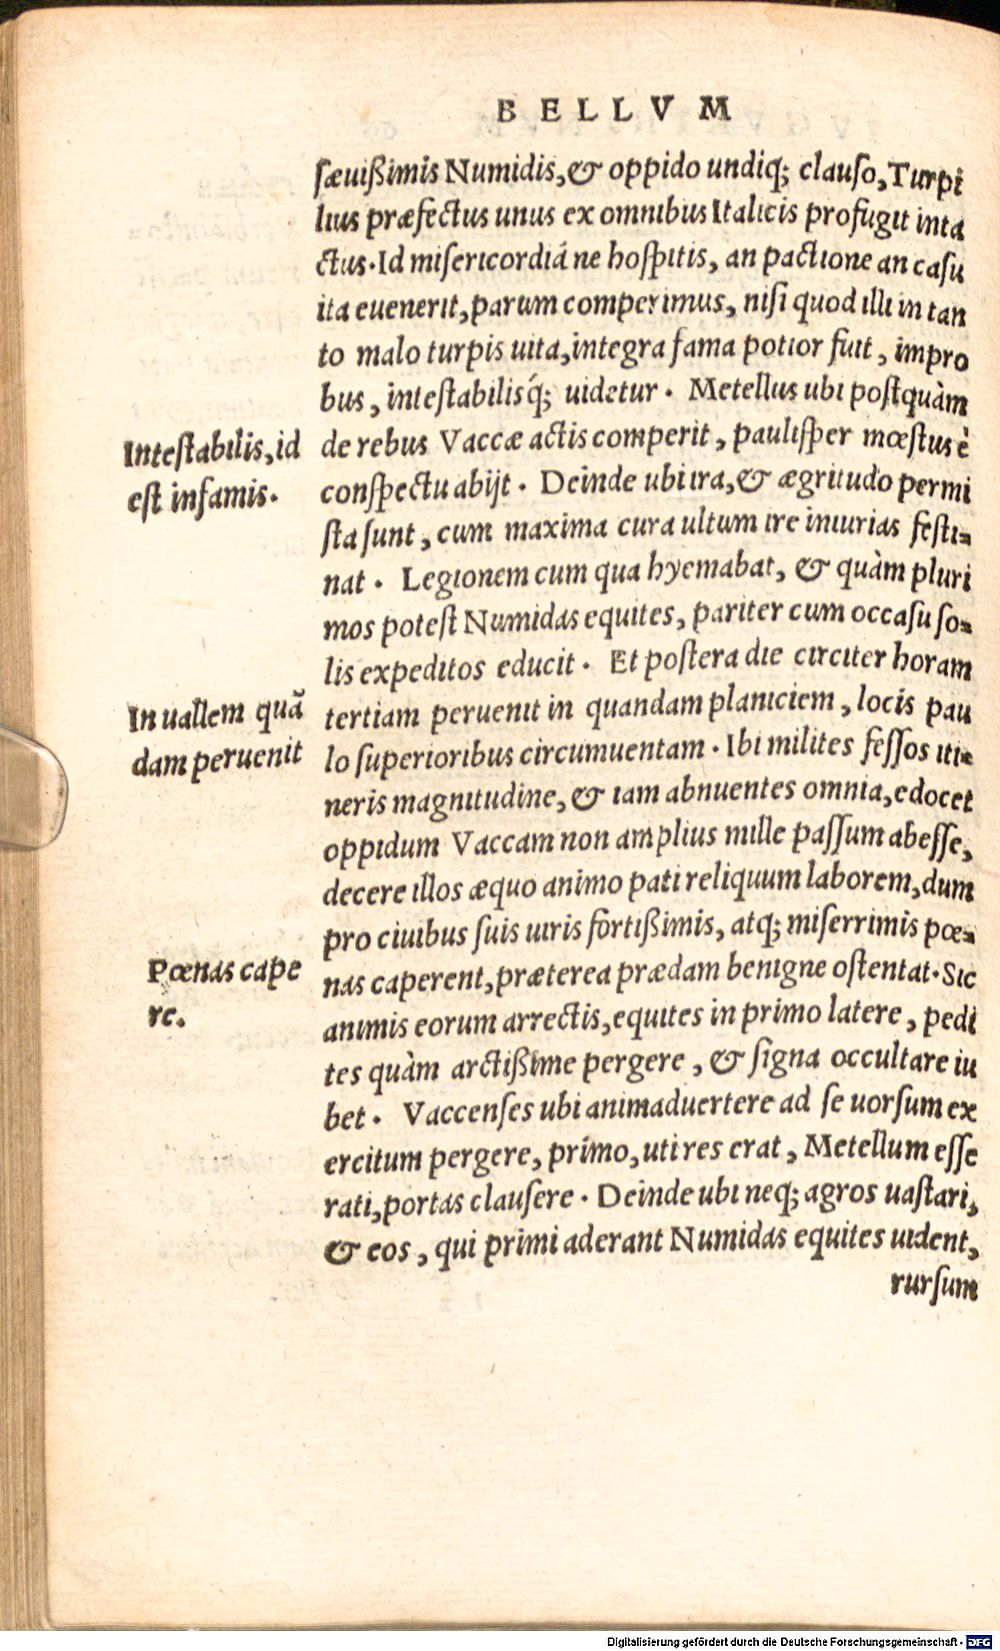 BELLVM
sæuißimis Numidis, & oppido undiq; clauso, Turpi
lius præfectus unus ex omnibus Italicis profugit inta
ctus. Id misericordiá ne hospitis, an pactione an casu
ita euenerit, parum comperimus, nisi quod illi in tan
to malo turpis uita, integra fama potior fuit, impro
bus, intestabilisq́; uidetur. Metellus ubi postquàm
de rebus Vaccæ actis comperit, paulisper mœstus è
conspectu abijt. Deinde ubi ira, & ægritudo permi
sta sunt, cum maxima cura ultum ire iniurias festi=
nat. Legionem cum qua hyemabat, & quàm pluri
mos potest Numidas equites, pariter cum occasu so=
lis expeditos educit. Et postera die circiter horam
tertiam peruenit in quandam planiciem, locis pau
lo superioribus circumuentam. Ibi milites fessos iti=
neris magnitudine, & iam abnuentes omnia, edocet
oppidum Vaccam non amplius mille passum abesse,
decere illos æquo animo pati reliquum laborem, dum
pro ciuibus suis uiris fortißimis, atq; miserrimis pœ=
nas caperent, præterea prædam benigne ostentat. Sic
animis eorum arrectis, equites in primo latere, pedi
tes quàm arctißime pergere, & signa occultare iu
bet. Vaccenses ubi animaduertere ad se uorsum ex
ercitum pergere, primo, uti res erat, Metellum esse
rati, portas clausere. Deinde ubi neq; agros uastari,
& eos, qui primi aderant Numidas equites uident,
rursum
Intestabilis, id
est infamis.
In uallem quã
dam peruenit
Pœnas cape
re.
Digitalisierung gefördert durch die Deutsche Forschungsgemeinschaft - DFG